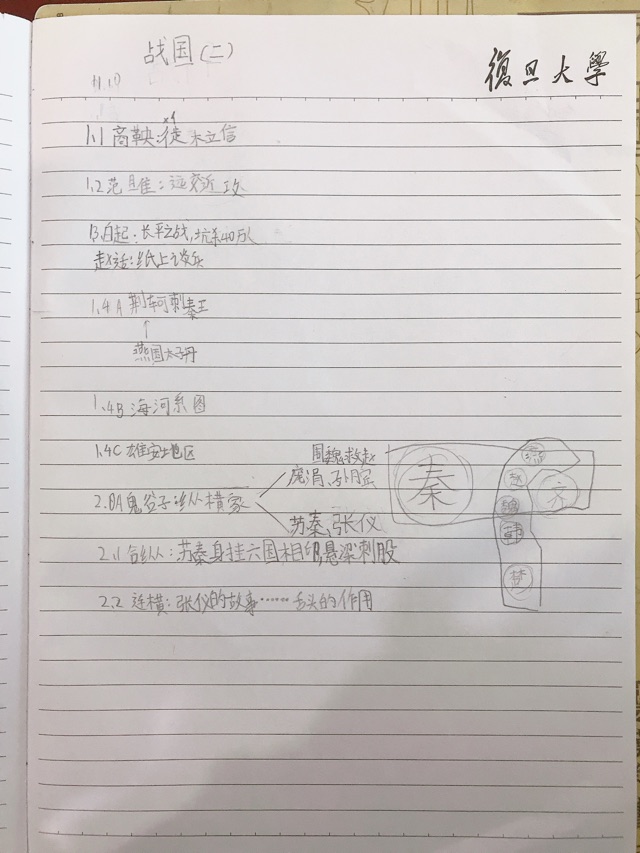 战国(二)
復旦大學
11.10
1.1 商鞅:徒木立信
1.2 范雎:远交近攻
1.3 白起:长平之战,坑杀40万人
赵括:纸上谈兵
1.4A 荆轲刺秦王
↑
燕国太子丹
1.4B 海河系图
1.4C 雄安地区
围魏救赵
庞涓、孙膑
2.0A 鬼谷子:纵横家
苏秦、张仪
秦
燕
赵
齐
魏
韩
楚
2.1 合纵:苏秦身挂六国相印,悬梁刺股
2.2 连横:张仪的故事……舌头的作用